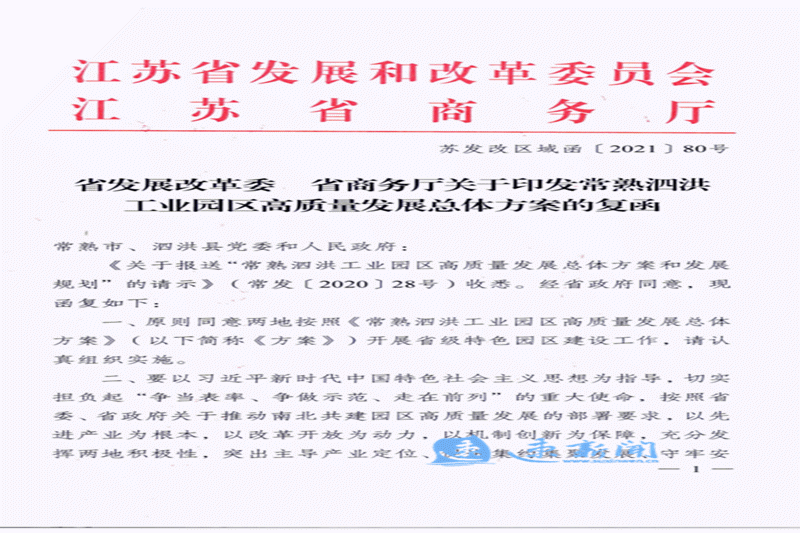 江苏省发展和改革委员会
江苏省商务厅
苏发改区域函〔2021〕80号
省发展改革委 省商务厅关于印发常熟泗洪
工业园区高质量发展总体方案的复函
常熟市、泗洪县党委和人民政府：
《关于报送“常熟泗洪工业园区高质量发展总体方案和发展
规划”的请示》（常发〔2020〕28号）收悉。经省政府同意，现
函复如下：
一、原则同意两地按照《常熟泗洪工业园区高质量发展总体
方案》（以下简称《方案》）开展省级特色园区建设工作，请认
真组织实施。
二、要以习近平新时代中国特色社会主义思想为指导，切实
担负起“争当表率、争做示范、走在前列”的重大使命，按照省
委、省政府关于推动南北共建园区高质量发展的部署要求，以先
进产业为根本，以改革开放为动力，以机制创新为保障，充分发
挥两地积极性，突出主导产业定位、集约集聚发展、守牢安
— 1 —